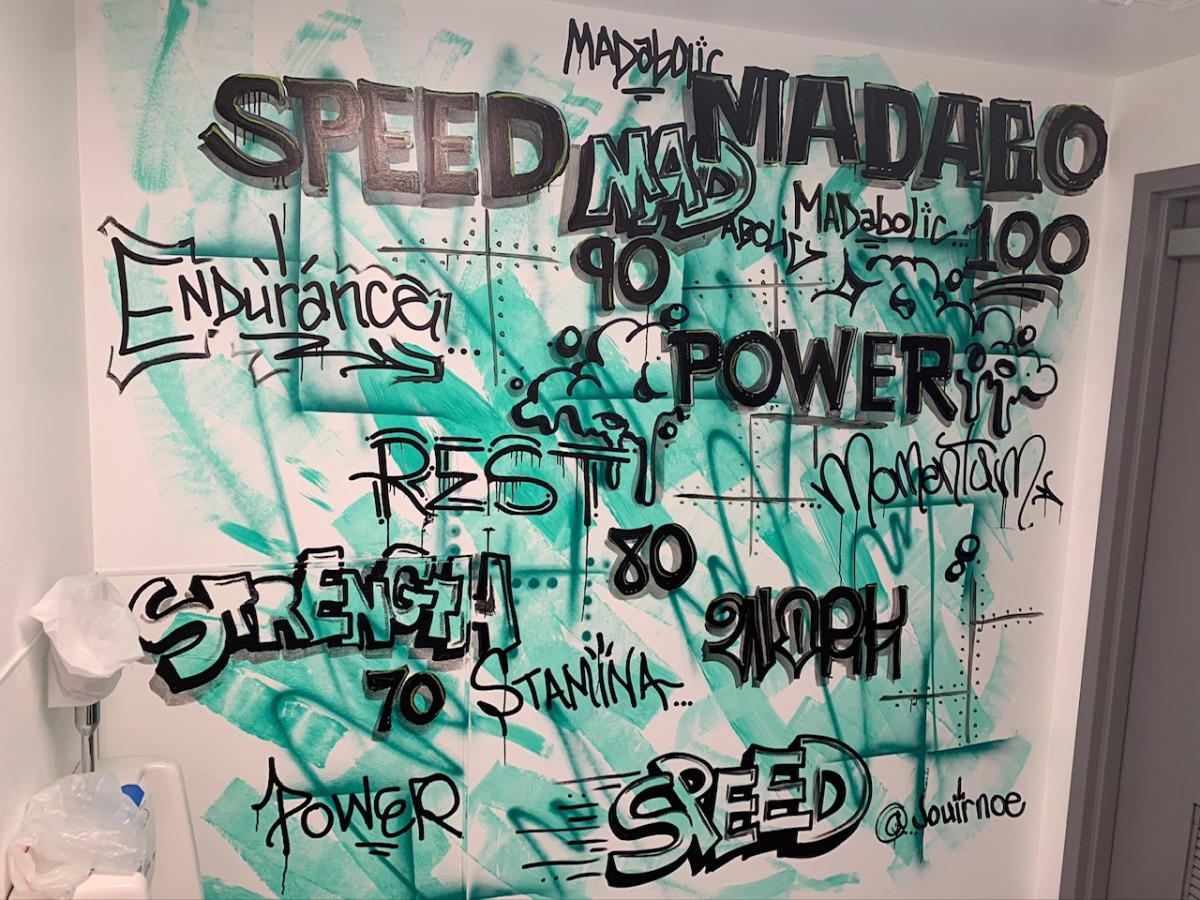 MADabolic
SPEED
MADABO
MAD
ABOLIC
MADabolic...
90
100
Endurance...
POWER
REST
Momentum
80
STRENGTH
WORK
70
STAMINA...
POWER
SPEED
@Jouirnoe